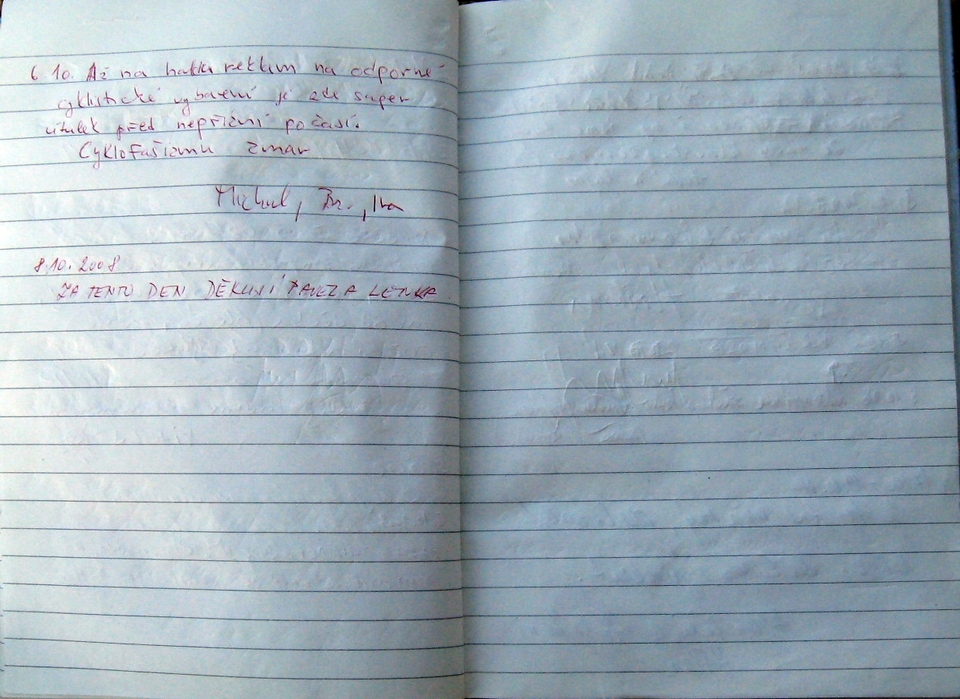 6.10. Až na haldu reklam na odporné
cyklistické vybavení je zde super
útulek před nepřízní počasí.
Cyklofašizmu zmar
Michal, Iva
8.10.2008
ZA TENTO DEN DĚKUJÍ PAVEL A LENKA